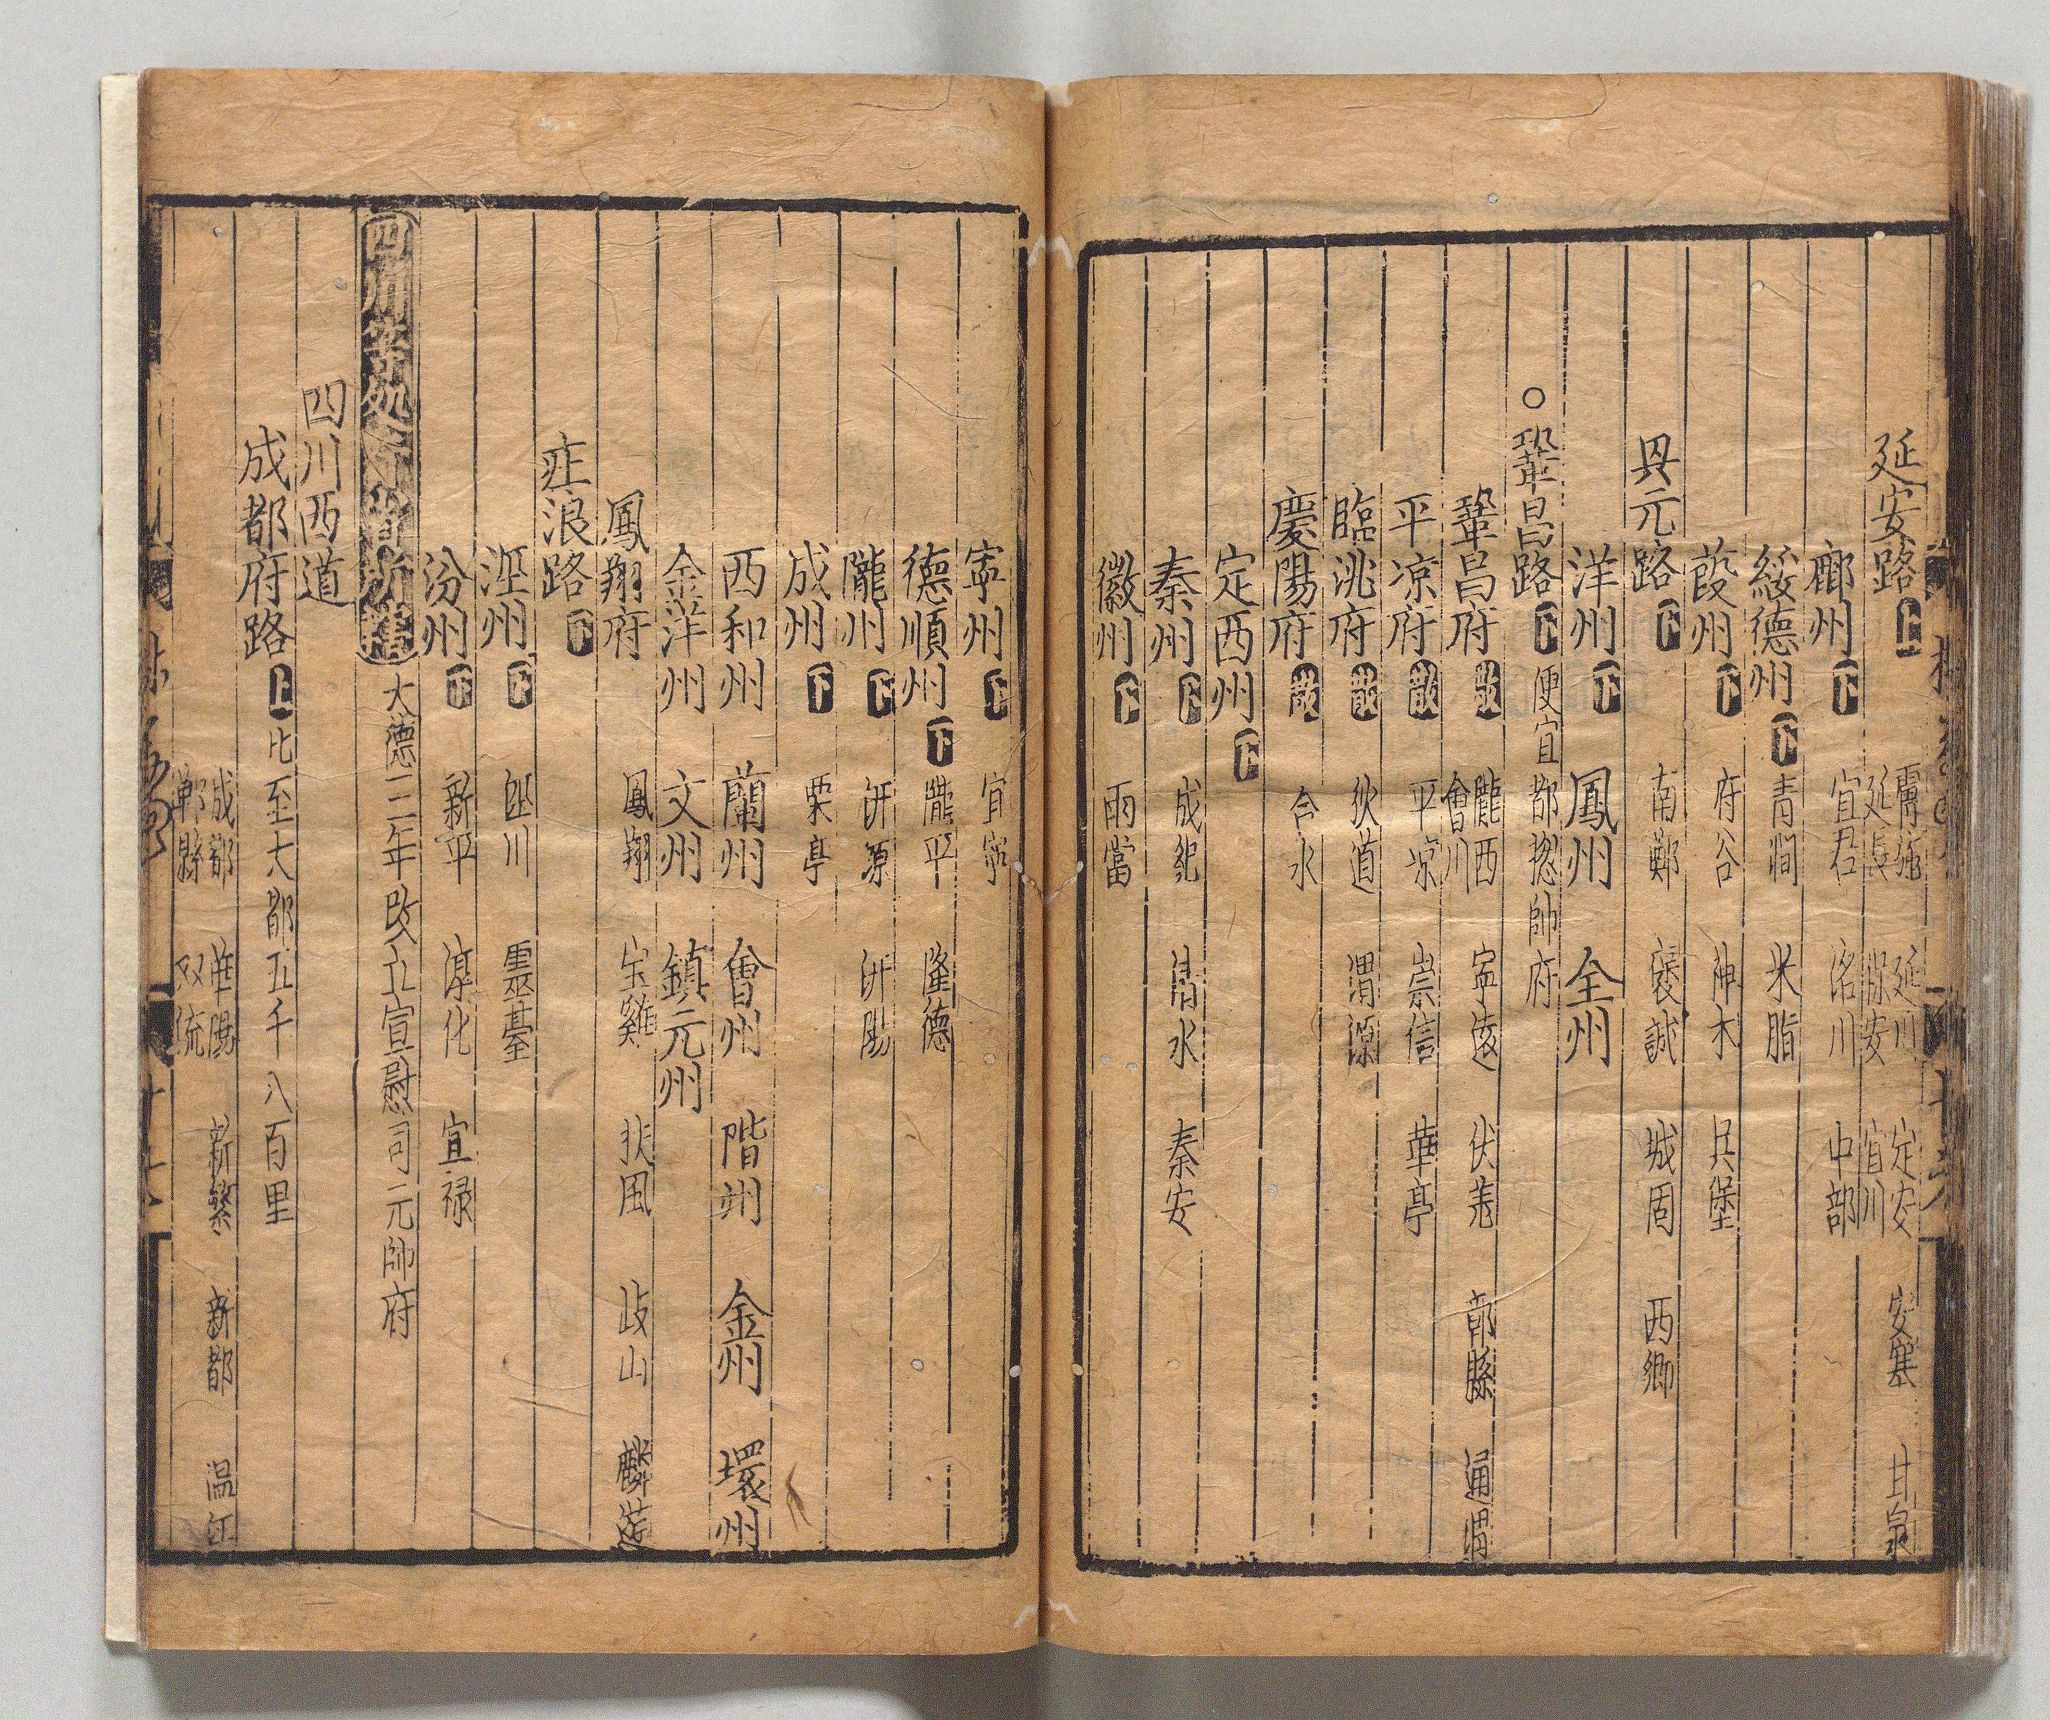 延安路 上
膚施 延川 定安 安塞 甘泉
延長 保安 宜川
鄜州 下 宜君 洛川 中部
綏德州 下 青澗 米脂
葭州 下 府谷 神木 吳堡
元路 下 南鄭 褒城 城固 西鄉
洋州 下 鳳州 全州
○鞏昌路 下 便宜都捴帥府
鞏昌府 散 隴西 寧遠 伏羌 部縣 通渭
會川
平凉府 散 平凉 崇信 華亭
臨洮府 散 狄道 渭源
慶陽府 散 合水
定西州 下
秦州 下 成紀 清水 秦安
徽州 下 両當
寧州 下 宜寧
德順州 下 隴平 隆德
隴州 下 汧源 汧陽
成州 下 栗亭
西和州 蘭州 會州 階州 金州 環州
金洋州 文州 鎮元州
鳳翔府 鳳翔 宝雞 扶風 岐山 麟遊
庄浪路 下
涇州 下 涇川 靈臺
汾州 下 新平 淳化 宜禄
四川等处行省所轄 大德二年改立宣慰司元帥府
四川西道
成都府路 上 比至大都五千八百里
成都 華陽 新繁 新都 温江
郫縣 双流